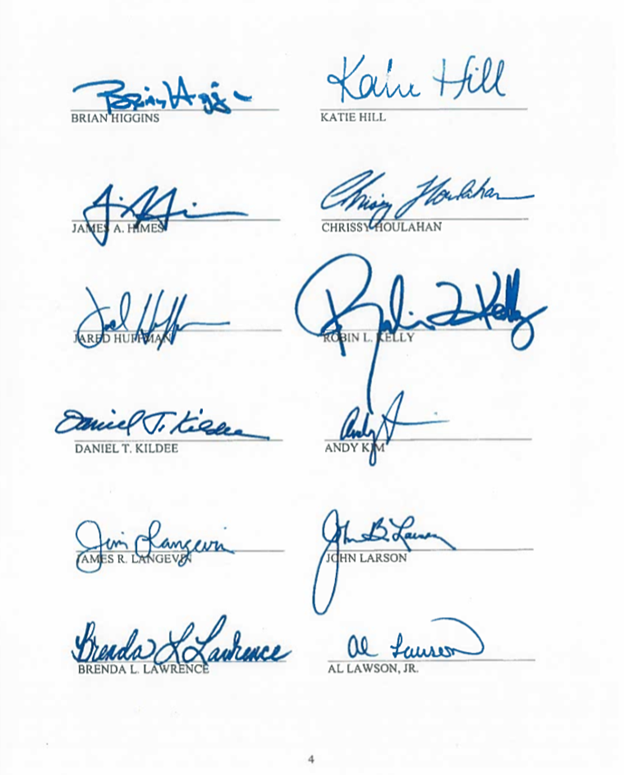 Brian Higgins Katie Hill
BRIAN HIGGINS KATIE HILL
Chrissy Houlahan
JAMES A. HIMES CHRISSY HOULAHAN
Jared Huffman Robin L Kelly
JARED HUFFMAN ROBIN L. KELLY
Daniel T. Kildee Andy
DANIEL T. KILDEE ANDY KIM
Jim Langevin John B. Larson
JAMES R. LANGEVIN JOHN LARSON
Brenda L Lawrence Al Lawson
BRENDA L. LAWRENCE AL LAWSON, JR.
4